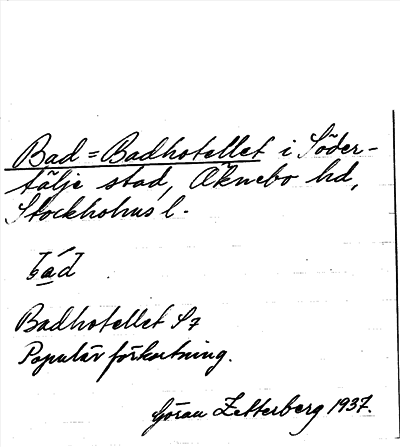 Bad = Badhotellet i Söder-
tälje stad, Öknebo hd,
Stockholms l.
bad
Badhotellet S7
Populär förkortning.
Göran Zetterberg 1937.